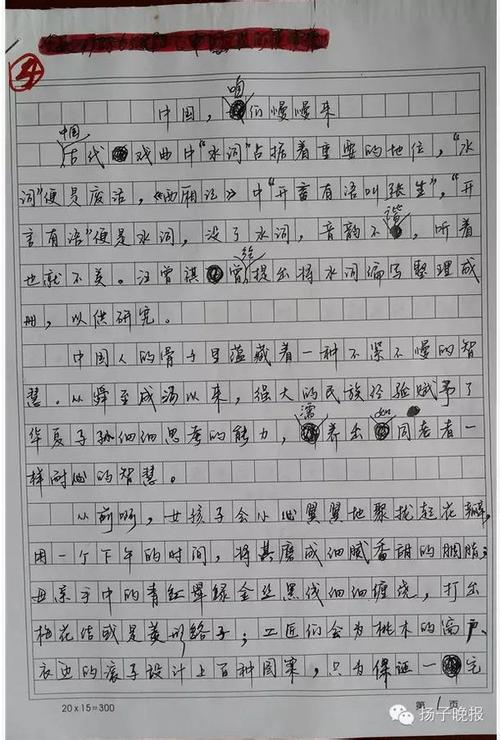 4
中国，咱们慢慢来
中国古代戏曲中“水词”占据着重要的地位，“水
词”便是废话，《西厢记》中“开言有语叫张生”，“开
言有语”便是水词，没了水词，音韵不谐，听着
也就不美。汪曾祺曾经提出将水词编写整理成
册，以供研究。
中国人的骨子里蕴藏着一种不紧不慢的智
慧。从舜至成汤以来，强大的民族经验赋予了
华夏子孙细细思考的能力，濡养出如同老者一
样耐心的智慧。
从前啊，女孩子会小心翼翼地聚拢起花瓣，
用一个下午的时间，将其磨成细腻香甜的胭脂；
母亲手中的青红翠绿金丝黑线细细缠绕，打出
梅花结或是菱形络子；工匠们会为桃木的窗户、
衣边的滚子设计上百种图案，只为保证一完
20×15=300
第1页
扬子晚报